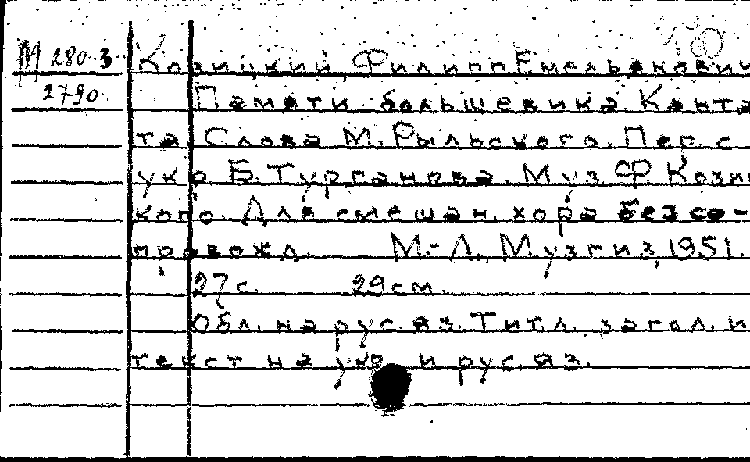 М 280.3
2790
Козицкий, Филипп Емельянович
Памяти большевика. Канта-
та. Слова М. Рыльского. Пер. с
укр. Б. Турганова. Муз. Ф. Козиц-
кого. Для смешан. хора без со-
провожд. М.-Л. Музгиз, 1951.
27 с. 29 см.
Обл. на рус. яз. Титл. загол. и
текст на укр. и рус. яз.